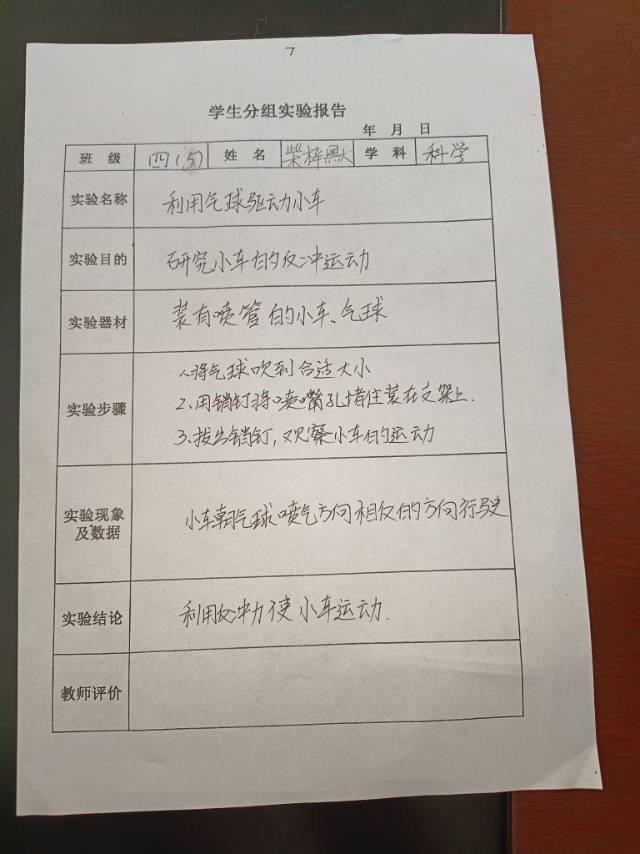 7
学生分组实验报告
年 月 日
班 级 四(5) 姓 名 柴梓默 学 科 科学
实验名称 利用气球驱动小车
实验目的 研究小车的反冲运动
实验器材 装有喷管的小车、气球
实验步骤
1、将气球吹到合适大小
2、用销钉将喷嘴孔堵住装在支架上.
3、拔出销钉,观察小车的运动
实验现象及数据 小车朝气球喷气方向相反的方向行驶
实验结论 利用反冲力使小车运动.
教师评价